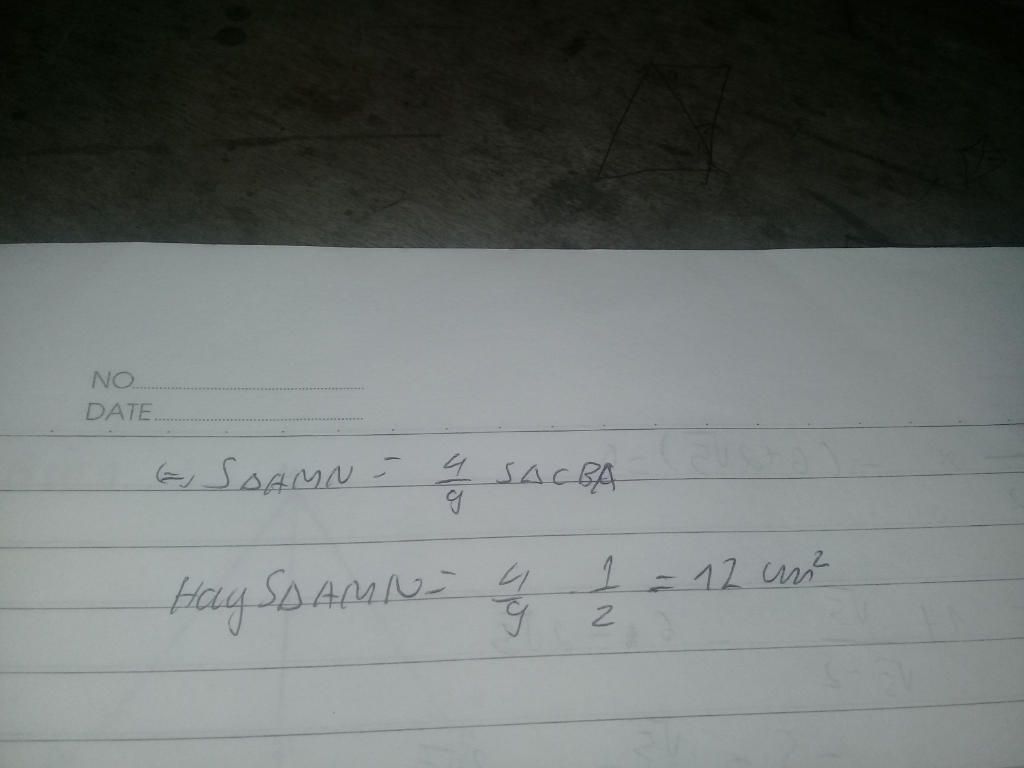 NO
DATE
⇔ SΔAMN = 4/9 SΔCBA
Hay SΔAMN = 4/9 . 1/2 = 12 cm²